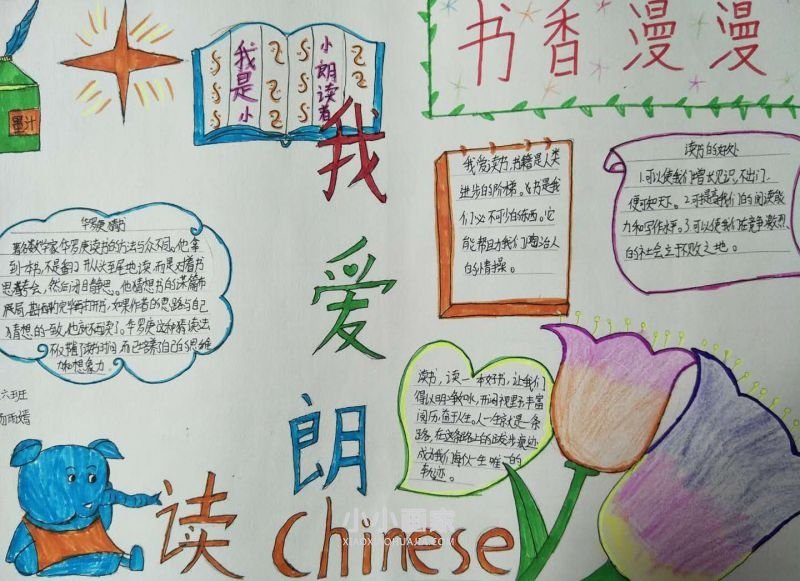 墨汁
我是小
小朗读者
书香漫漫
我爱朗读
Chinese
华罗庚猜书
著名数学家华罗庚读书的方法与众不同。他拿
到一本书,不是翻开从头至尾地读,而是对着书
思考一会,然后闭目静思。他猜想书的谋篇布
猜想的一致,他就不再读了。华罗庚这种猜读法
不仅节省了读书时间,而且培养了自己的思维
力和想象力。
我爱读书,书籍是人类
进步的阶梯。书是我
们必不可少的东西。它
能帮助我们陶冶人
的情操。
读书的好处
1.可以使我们增长见识,不出门,
便可知天下。2.可提高我们的阅读能
力和写作水平。3.可以使我们在竞争激烈
的社会立于不败之地。
读书,读一本好书,让我们
得以明净如水,开阔视野,丰富
阅历,益于人生。人一生就是一条
路,在这条路上的跋涉痕迹
成为我们每个人一生唯一的
轨迹。
六班
小小画家
XIAOXIAOHUAJIA.COM